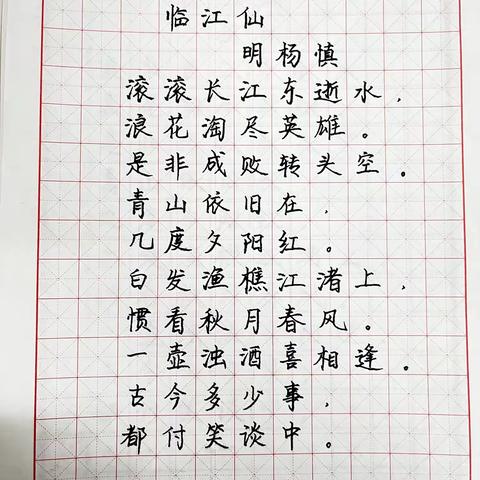 临江仙
明杨慎
滚滚长江东逝水，
浪花淘尽英雄。
是非成败转头空。
青山依旧在，
几度夕阳红。
白发渔樵江渚上，
惯看秋月春风。
一壶浊酒喜相逢。
古今多少事，
都付笑谈中。